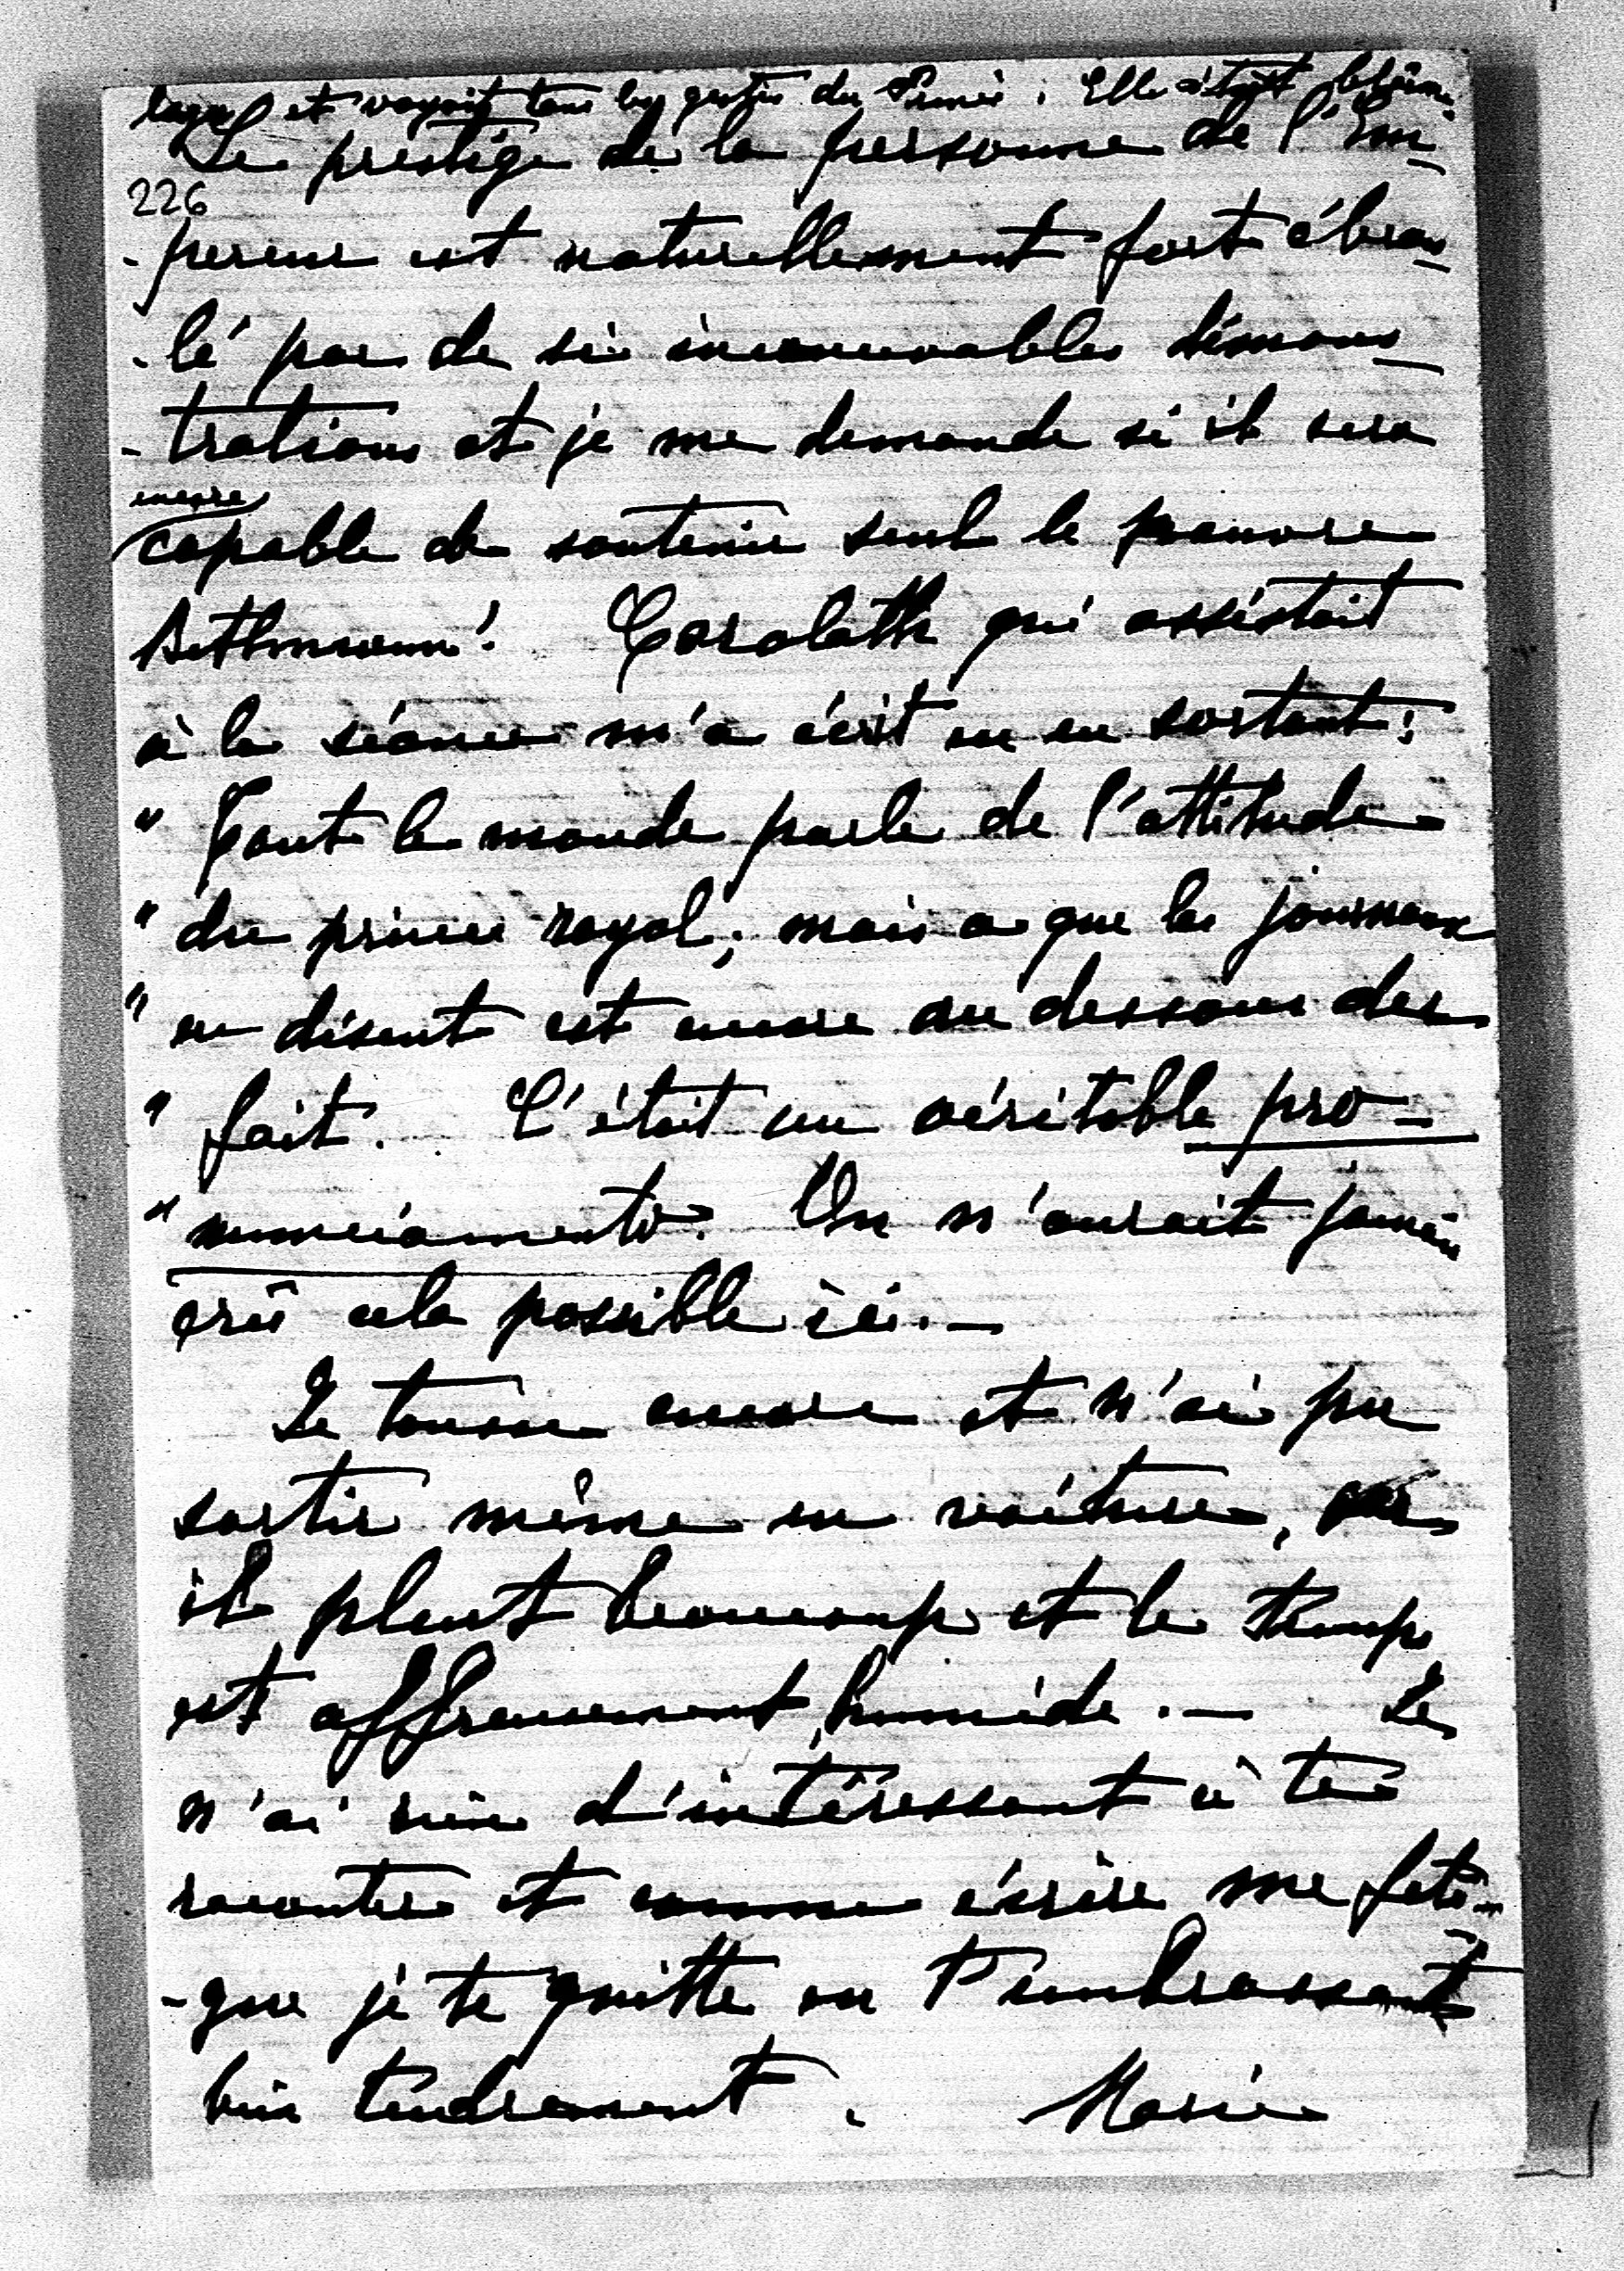 loge et voyait tous les gestes du Prince. Elle était blême.
Le prestige de la personne de l'Em-
226
-pereur est naturellement fort ébran-
-lé par de si inconcevables démons-
-trations et je me demande si il sera
encore
capable de soutenir seul le pauvre
Bethmann! Carolath qui assistait
à la séance m'a écrit en en sortant:
" Tout le monde parle de l'attitude
" du prince royal; mais ce que les journaux
" en disent est encore au dessous des
" fait. C'était un véritable pro-
" nunciamento. On n'aurait jamais
crû cela possible ici. —
Je tousse encore et n'ai pu
sortir même en voiture, car
il pleut beaucoup et le temps
est affreusement humide. — Je
n'ai rien d'intéressant à te
raconter et comme écrire me fati-
-gue je te quitte en t'embrassant
bien tendrement. Marie